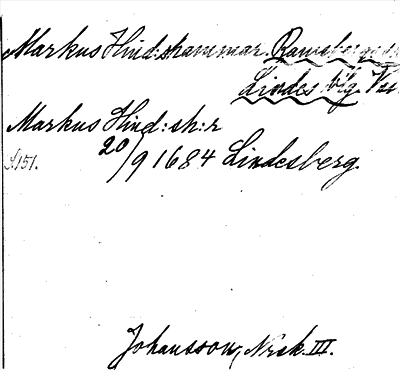 Markus Hind:shammar. Ramsbergs
Lindes blg. Väs
Markus Hind:sh:r
20/9 1684 Lindesberg.
S.151.
Johansson, Norsk. III.